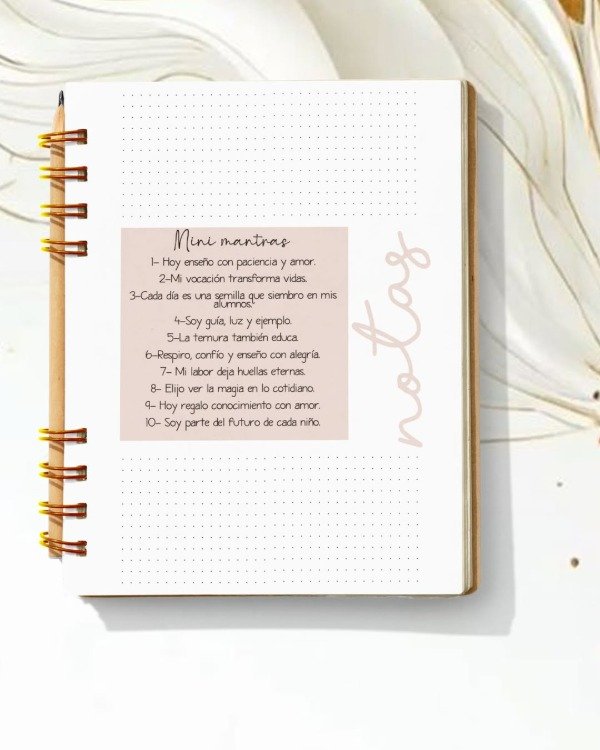 Mini mantras
1- Hoy enseño con paciencia y amor.
2-Mi vocación transforma vidas.
3-Cada día es una semilla que siembro en mis
alumnos."
4-Soy guía, luz y ejemplo.
5-La ternura también educa.
6-Respiro, confío y enseño con alegría.
7- Mi labor deja huellas eternas.
8- Elijo ver la magia en lo cotidiano.
9- Hoy regalo conocimiento con amor.
10- Soy parte del futuro de cada niño.
notas